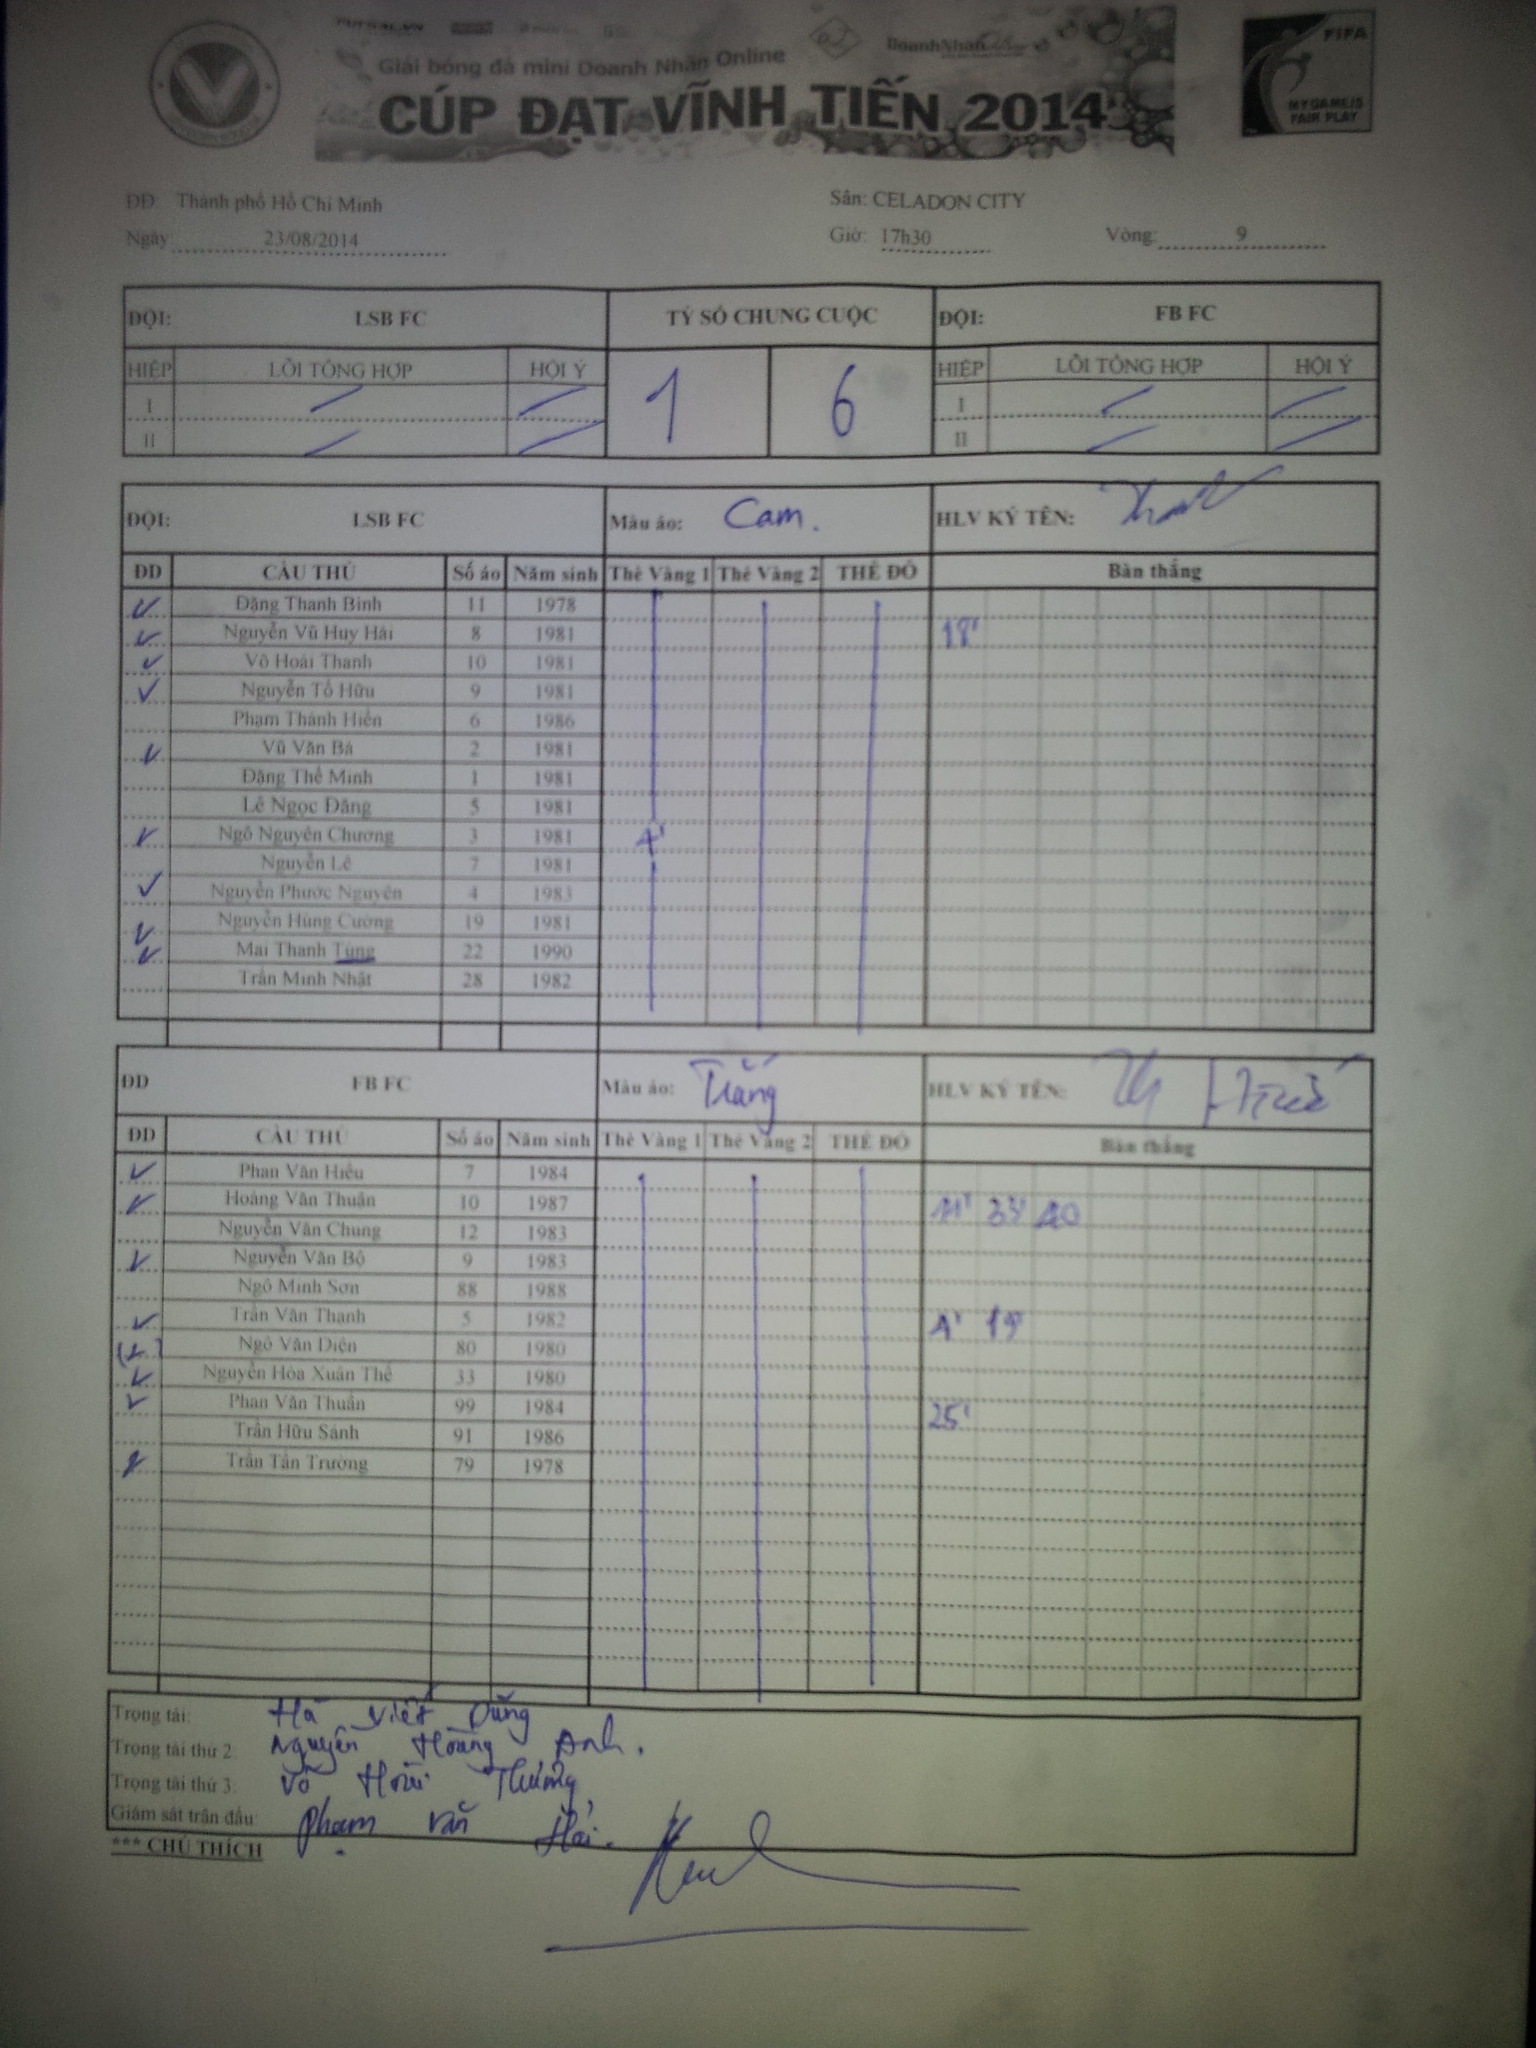 Giải bóng đá mini Doanh Nhân Online
CÚP ĐẠT VĨNH TIẾN 2014
FIFA
MY GAME IS
FAIR PLAY
ĐĐ: Thành phố Hồ Chí Minh Sân: CELADON CITY
Ngày 23/08/2014 Giờ: 17h30 Vòng: 9
ĐỘI: LSB FC TỶ SỐ CHUNG CUỘC ĐỘI: FB FC
HIỆP LỖI TỔNG HỢP HỘI Ý 1 6 HIỆP LỖI TỔNG HỢP HỘI Ý
I I
II II
ĐỘI: LSB FC Màu áo: Cam. HLV KÝ TÊN:
ĐD CẦU THỦ Số áo Năm sinh Thẻ Vàng 1 Thẻ Vàng 2 THẺ ĐỎ Bàn thắng
Đặng Thanh Bình 11 1978
Nguyễn Vũ Huy Hải 8 1981 18'
Võ Hoài Thanh 10 1981
Nguyễn Tố Hữu 9 1981
Phạm Thành Hiển 6 1986
Vũ Văn Bá 2 1981
Đặng Thế Minh 1 1981
Lê Ngọc Đăng 5 1981
Ngô Nguyên Chương 3 1981 4'
Nguyễn Lê 7 1981
Nguyễn Phước Nguyên 4 1983
Nguyễn Hùng Cường 19 1981
Mai Thanh Tùng 22 1990
Trần Minh Nhật 28 1982
ĐD FB FC Màu áo: Trắng HLV KÝ TÊN:
ĐD CẦU THỦ Số áo Năm sinh Thẻ Vàng 1 Thẻ Vàng 2 THẺ ĐỎ Bàn thắng
Phan Văn Hiếu 7 1984
Hoàng Văn Thuận 10 1987 11' 33' 40
Nguyễn Văn Chung 12 1983
Nguyễn Văn Bộ 9 1983
Ngô Minh Sơn 88 1988
Trần Văn Thanh 5 1982 4' 19'
Ngô Văn Diện 80 1980
Nguyễn Hòa Xuân Thế 33 1980
Phan Văn Thuần 99 1984 25'
Trần Hữu Sánh 91 1986
Trần Tấn Trường 79 1978
Trọng tài: Hà Viết Dũng
Trọng tài thứ 2: Nguyễn Hoàng Anh.
Trọng tài thứ 3: Võ Hoài Thương
Giám sát trận đấu: Phạm Văn Hải.
*** CHÚ THÍCH